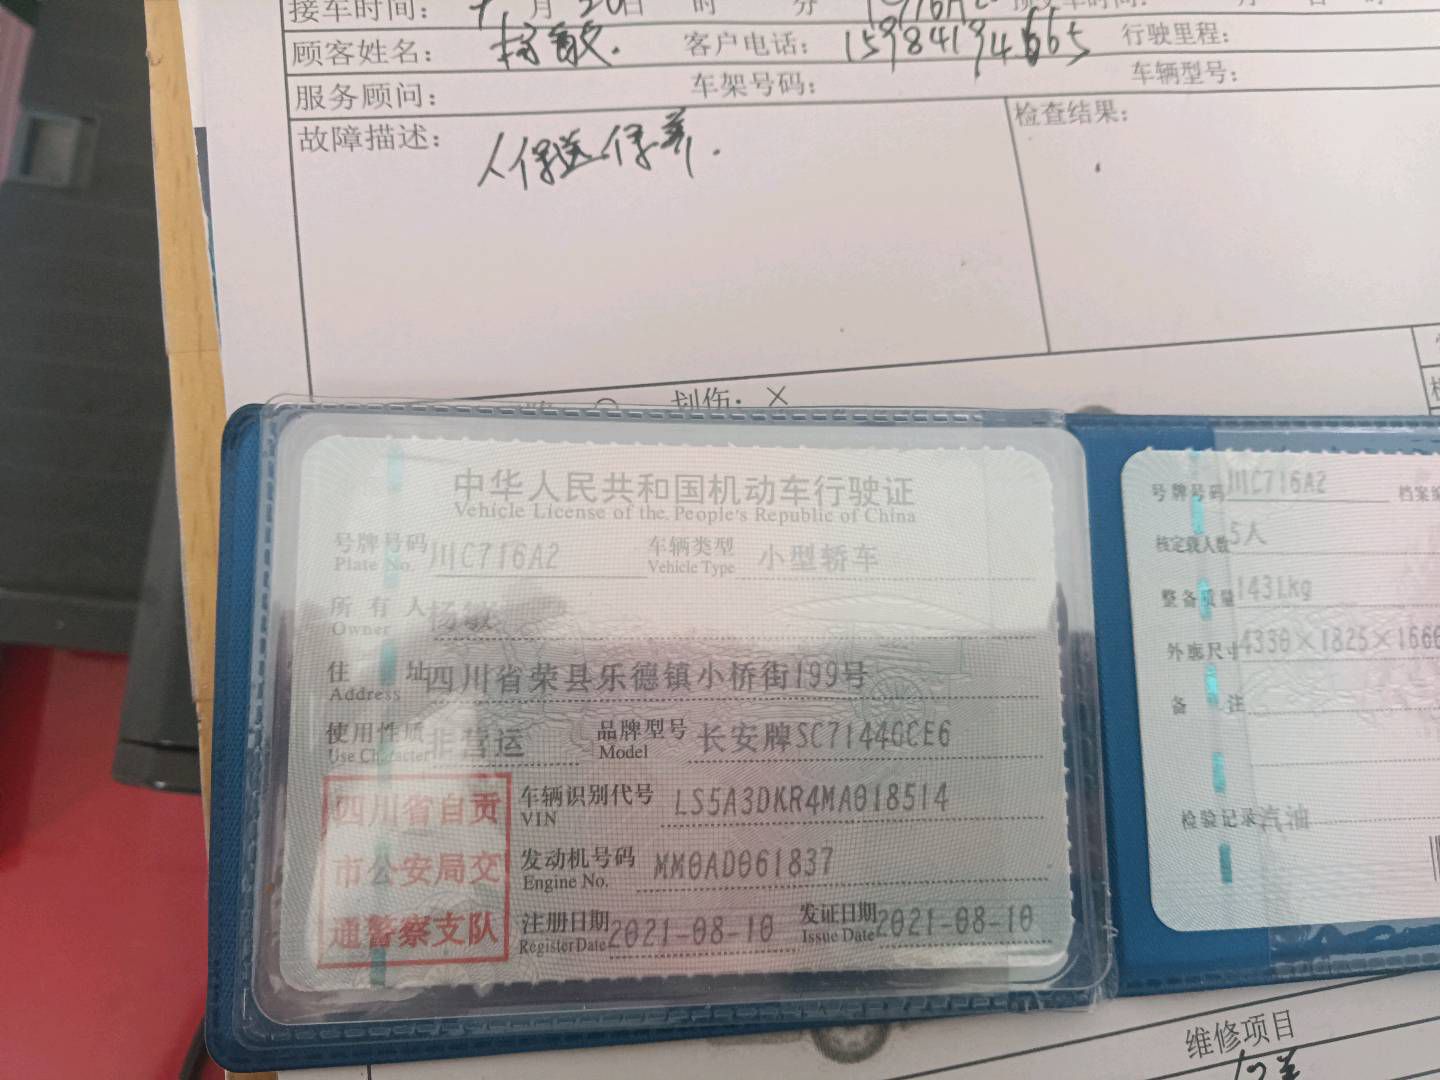 接车时间： 月20日 时 分
顾客姓名： 杨敏. 客户电话： 15984194665 行驶里程：
服务顾问： 车架号码： 车辆型号：
故障描述： 人保送保养. 检查结果：
划伤：×
中华人民共和国机动车行驶证
Vehicle License of the People's Republic of China
号牌号码 川C716A2 车辆类型 小型轿车
Plate No. Vehicle Type
所有人 杨敏
Owner
住址 四川省荣县乐德镇小桥街199号
Address
使用性质 非营运 品牌型号 长安牌SC7144GCE6
Use Character Model
四川省自贡
市公安局交
通警察支队
车辆识别代号 LS5A3DKR4MA018514
VIN
发动机号码 MM0AD061837
Engine No.
注册日期 2021-08-10 发证日期 2021-08-10
Register Date Issue Date
号牌号码 川C716A2 档案编
核定载人数 5人
整备质量 1431kg
外廓尺寸 4330×1825×1660
备注
检验记录 汽油
维修项目